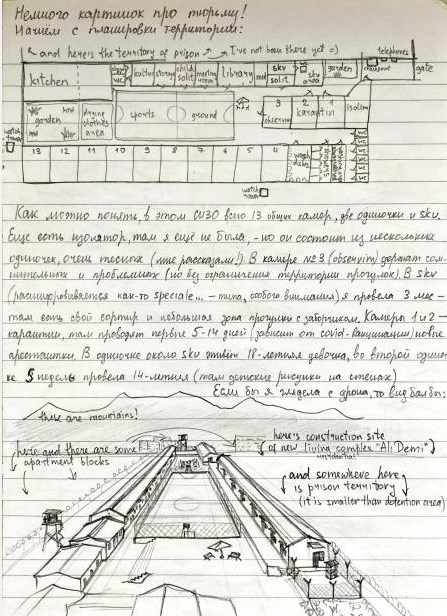 Немного картинок про тюрьму!
Начнем с планировки территории:
and here's the territory of prison
I've not been there yet =)
telephones
checkpoint
gate
kitchen
kultur
storage
child solit.
meeting room
library
med
SKV
solit.
SKV area
garden
garden
drying clothes area
sports ground
3 observ.
2
1
карантин
Isolim
watch tower
13 12 11 10 9 8 7 6 5 4
wash dishes
showers
watch tower
Как можно понять, в этом СИЗО всего 13 общих камер, две одиночки и skv.
Еще есть изолятор, там я ещё не была, - но он состоит из нескольких
одиночек, очень тесных (мне рассказали!). В камере №3 (observim) держат сом-
нительных и проблемных (но без ограничения территории прогулок). В skv
(расшифровывается как-то speciale... - типа, особого внимания) я провела 3 мес -
там есть свой сортир и небольшая зона прогулки с заборчиком. Камеры 1 и 2 -
карантин, там проводят первые 5-14 дней (зависит от covid-вакцинации) новые
арестантки. В одиночке около skv живёт 18-летняя девочка, во второй одиноч-
ке 5 недель провела 14-летняя (там детские рисунки на стенах)
Если бы я глядела с дрона, то вид был бы:
these are mountains!
here and there are some
apartment blocks
here's construction site
of new living complex "Ali Demi"
residential
and somewhere here
is prison territory
(it is smaller than detention area)